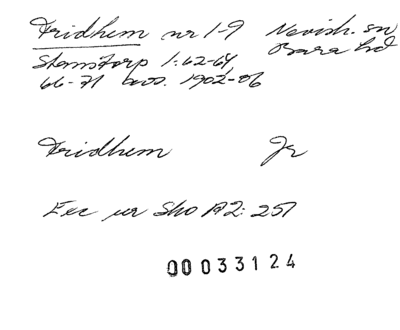 Fridhem nr 1-9 Nevish. sn
Stamstorp 1:62-64, Bara hd
66-71 avs. 1902-06
Fridhem Jr
Exc ur Sko A2: 251
00033124